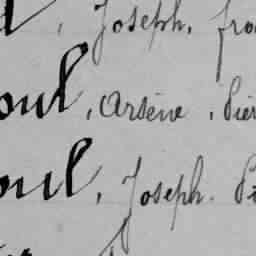 , Joseph, fra
oul, Arsène, Pier
oul, Joseph. Pi